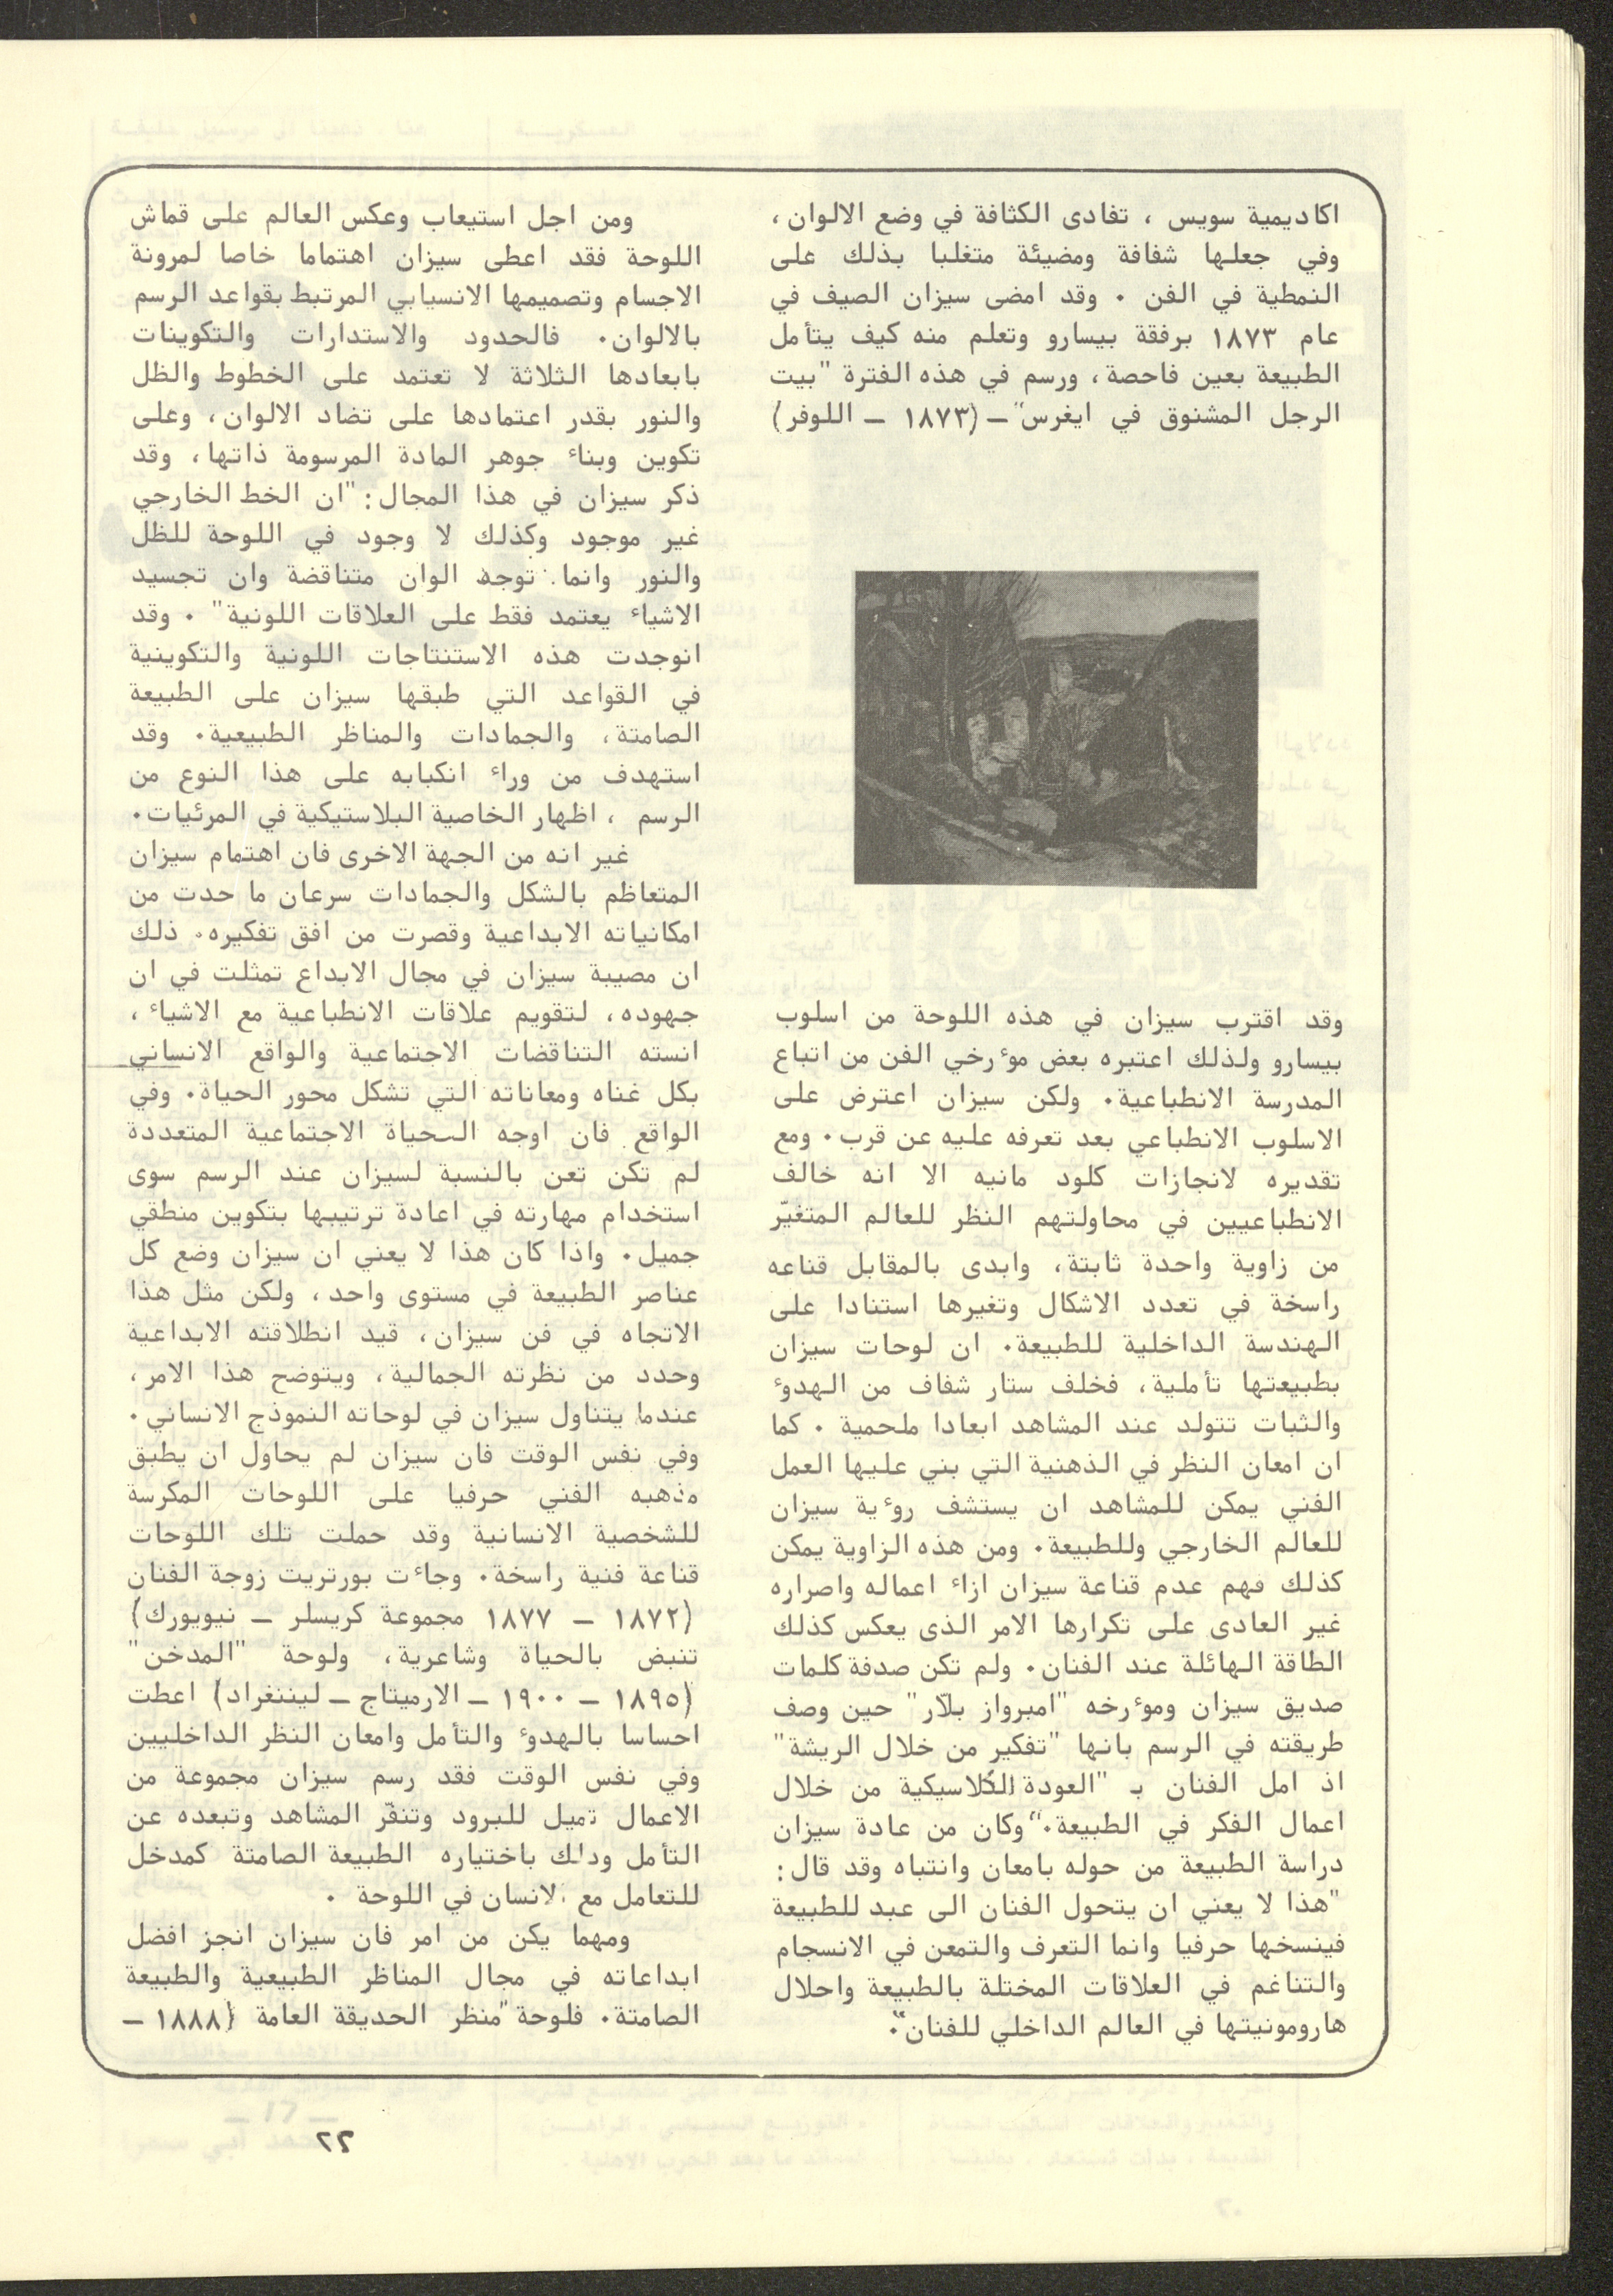 اكاديمية سويس ، تفادى الكثافة في وضع الالوان،
وفي جعلها شفافة ومضيئة متغلبا بذلك على
النمطية في الفن . وقد امضى سيزان الصيف في
عام ١٨٧٣ برفقة بيسارو وتعلم منه كيف يتأمل
الطبيعة بعين فاحصة، ورسم في هذه الفترة "بيت
الرجل المشنوق في ايغرس" – (١٨٧٣ – اللوفر)
وقد اقترب سيزان في هذه اللوحة من اسلوب
بيسارو ولذلك اعتبره بعض موٴرخي الفن من اتباع
المدرسة الانطباعية. ولكن سيزان اعترض على
الاسلوب الانطباعي بعد تعرفه عليه عن قرب. ومع
تقديره لانجازات كلود مانيه الا انه خالف
الانطباعيين في محاولتهم النظر للعالم المتغيّر
من زاوية واحدة ثابتة، وابدى بالمقابل قناعه
راسخة في تعدد الاشكال وتغيرها استنادا على
الهندسة الداخلية للطبيعة. ان لوحات سيزان
بطبيعتها تأملية، فخلف ستار شفاف من الهدوٴ
والثبات تتولد عند المشاهد ابعادا ملحمية . كما
ان امعان النظر في الذهنية التي بني عليها العمل
الفني يمكن للمشاهد ان يستشف روٴية سيزان
للعالم الخارجي وللطبيعة. ومن هذه الزاوية يمكن
كذلك فهم عدم قناعة سيزان ازاء اعماله واصراره
غير العادى على تكرارها الامر الذى يعكس كذلك
الطاقة الهائلة عند الفنان. ولم تكن صدفة كلمات
صديق سيزان وموٴرخه "امبرواز بلاّر" حين وصف
طريقته في الرسم بانها "تفكير من خلال الريشة"
اذ امل الفنان بـ "العودة للكلاسيكية من خلال
اعمال الفكر في الطبيعة." وكان من عادة سيزان
دراسة الطبيعة من حوله بامعان وانتباه وقد قال:
"هذا لا يعني ان يتحول الفنان الى عبد للطبيعة
فينسخها حرفيا وانما التعرف والتمعن في الانسجام
والتناغم في العلاقات المختلة بالطبيعة واحلال
هارومونيتها في العالم الداخلي للفنان".
ومن اجل استيعاب وعكس العالم على قماش
اللوحة فقد اعطى سيزان اهتماما خاصا لمرونة
الاجسام وتصميمها الانسيابي المرتبط بقواعد الرسم
بالالوان. فالحدود والاستدارات والتكوينات
بابعادها الثلاثة لا تعتمد على الخطوط والظل
والنور بقدر اعتمادها على تضاد الالوان، وعلى
تكوين وبناء جوهر المادة المرسومة ذاتها، وقد
ذكر سيزان في هذا المجال: "ان الخط الخارجي
غير موجود وكذلك لا وجود في اللوحة للظل
والنور وانما توجد الوان متناقضة وان تجسيد
الاشياء يعتمد فقط على العلاقات اللونية" . وقد
انوجدت هذه الاستنتاجات اللونية والتكوينية
في القواعد التي طبقها سيزان على الطبيعة
الصامتة، والجمادات والمناظر الطبيعية. وقد
استهدف من وراء انكبابه على هذا النوع من
الرسم ، اظهار الخاصية البلاستيكية في المرئيات.
غير انه من الجهة الاخرى فان اهتمام سيزان
المتعاظم بالشكل والجمادات سرعان ما حدت من
امكانياته الابداعية وقصرت من افق تفكيره. ذلك
ان مصيبة سيزان في مجال الابداع تمثلت في ان
جهوده، لتقويم علاقات الانطباعية مع الاشياء ،
انسته التناقضات الاجتماعية والواقع الانساني
بكل غناه ومعاناته التي تشكل محور الحياة. وفي
الواقع فان اوجه الحياة الاجتماعية المتعددة
لم تكن تعن بالنسبة لسيزان عند الرسم سوى
استخدام مهارته في اعادة ترتيبها بتكوين منطقي
جميل. واذا كان هذا لا يعني ان سيزان وضع كل
عناصر الطبيعة في مستوى واحد، ولكن مثل هذا
الاتجاه في فن سيزان، قيد انطلاقته الابداعية
وحدد من نظرته الجمالية، ويتوضح هذا الامر،
عندما يتناول سيزان في لوحاته النموذج الانساني.
وفي نفس الوقت فان سيزان لم يحاول ان يطبق
مذهبه الفني حرفيا على اللوحات المكرسة
للشخصية الانسانية وقد حملت تلك اللوحات
قناعة فنية راسخة. وجاءت بورتريت زوجة الفنان
(١٨٧٢ – ١٨٧٧ مجموعة كريسلر – نيويورك)
تنبض بالحياة وشاعرية، ولوحة "المدخن"
(١٨٩٥ – ١٩٠٠ – الارميتاج – ليننغراد) اعطت
احساسا بالهدوٴ والتأمل وامعان النظر الداخليين
وفي نفس الوقت فقد رسم سيزان مجموعة من
الاعمال تميل للبرود وتنفّر المشاهد وتبعده عن
التأمل وذلك باختياره الطبيعة الصامتة كمدخل
للتعامل مع الانسان في اللوحة .
ومهما يكن من امر فان سيزان انجز افضل
ابداعاته في مجال المناظر الطبيعية والطبيعة
الصامتة. فلوحة "منظر الحديقة العامة (١٨٨٨ –
٢٢